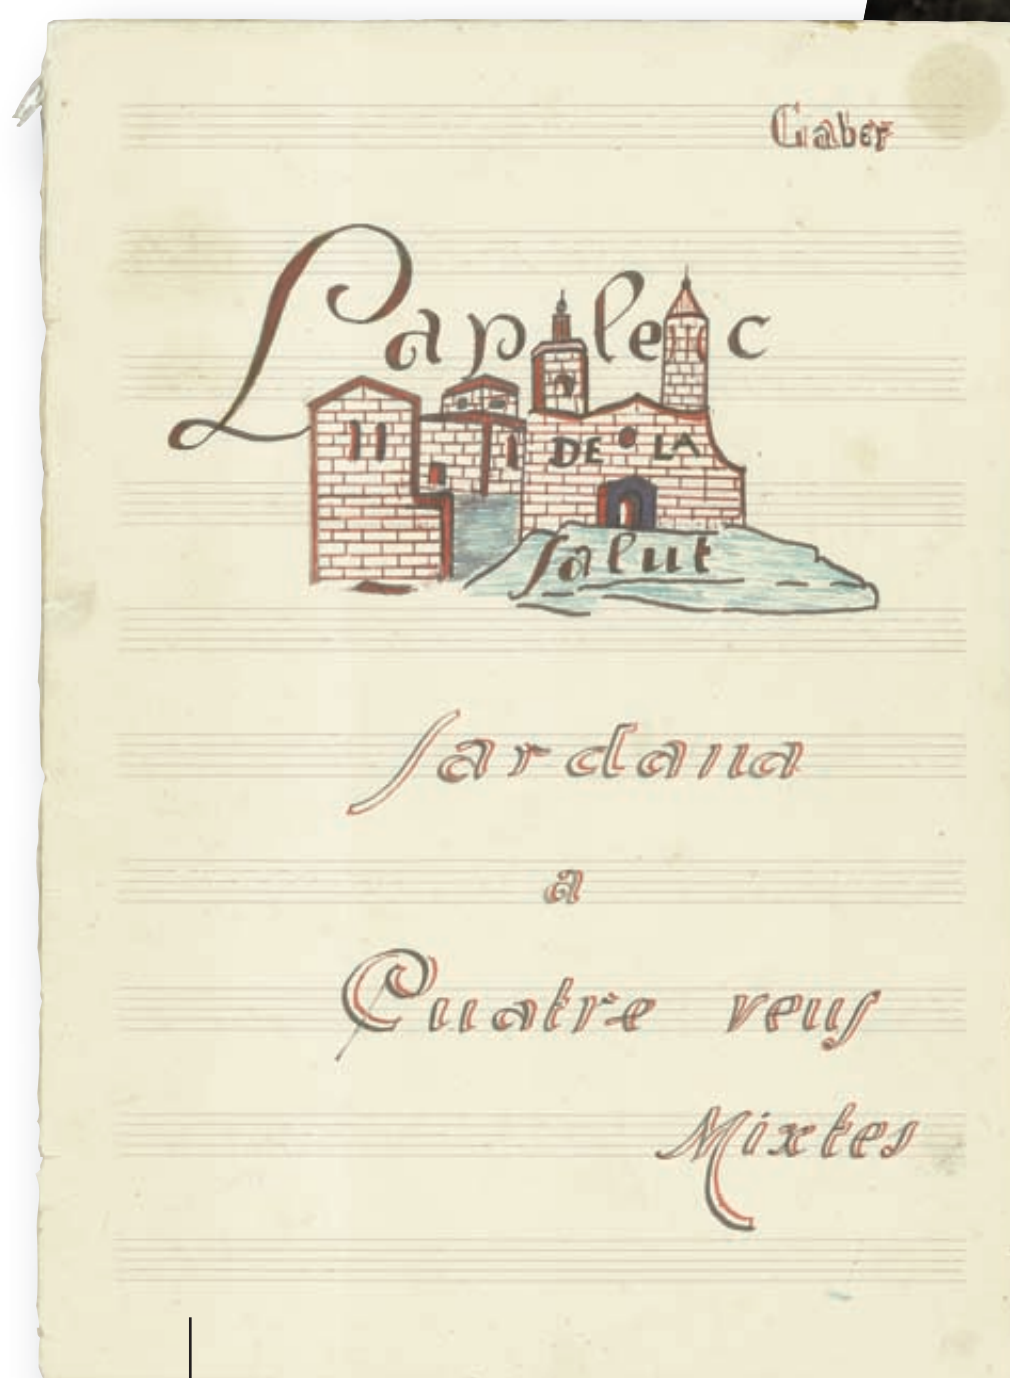 Gaber
Laplec
DE LA
Salut
Sardana
a
Cuatre veus
Mixtes